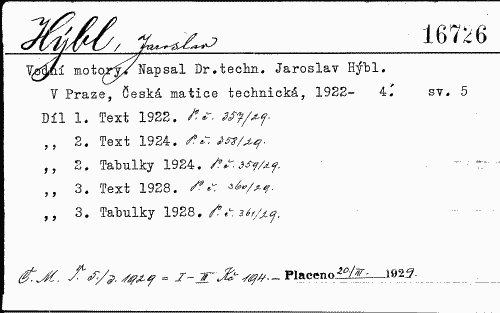 Hýbl, Jaroslav 16726
Vodní motory. Napsal Dr.techn. Jaroslav Hýbl.
V Praze, Česká matice technická, 1922- 4° sv. 5
Díl 1. Text 1922. P.č. 357/29.
,, 2. Text 1924. P.č. 358/29.
,, 2. Tabulky 1924. P.č. 359/29.
,, 3. Text 1928. P.č. 360/29.
,, 3. Tabulky 1928. P.č. 361/29.
Č. M. T. 5/3. 1929 = I-III Kč 194.- Placeno 20/III. 1929.